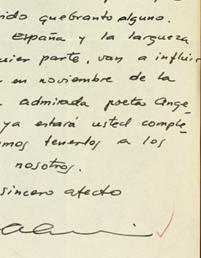 rido quebranto alguno.
España y la largueza
uier parte, van a influir
en noviembre de la
admirada poeta Ange-
ya estará usted comple-
mos tenerlos a los
nosotros.
sincero afecto